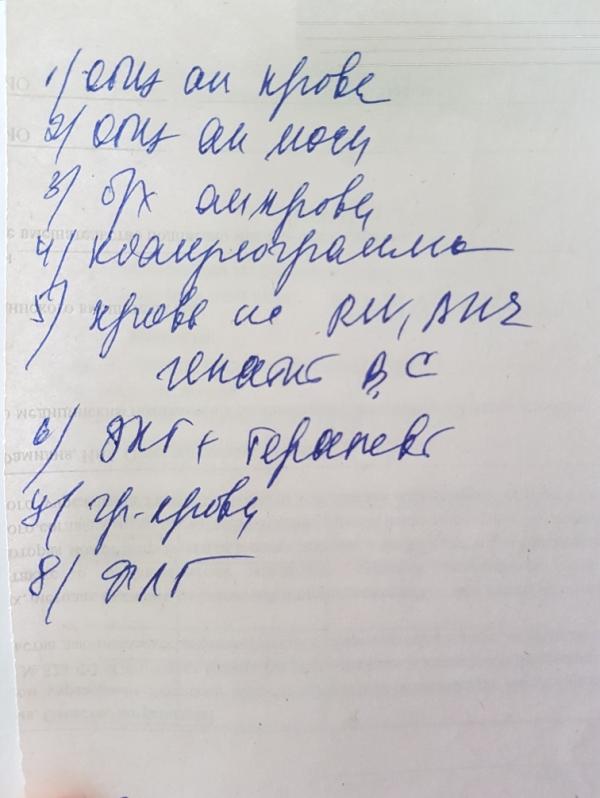 1/ общ ан крови
2/ общ ан мочи
3/ б/х ан крови
4/ коагулограмма
5/ кровь на RW, ВИЧ
гепатит В, С
6/ ЭКГ + терапевт
7/ гр. крови
8/ ФЛГ